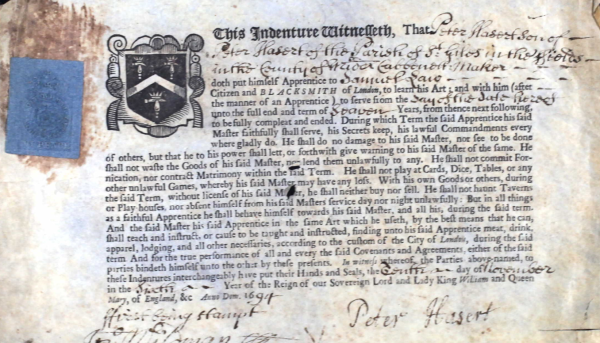 This Indenture Witnesseth, That Peter Hasert Son of
Peter Hasert of the Parish of St Giles in the Fields
in the County of Cabbonett Maker
doth put himself Apprentice to Samuel Law
Citizen and BLACKSMITH of London, to learn his Art; and with him (after
the manner of an Apprentice) to serve from the Day of the Date hereof
unto the full end and term of Seaven Years, from thence next following,
to be fully compleat and ended. During which Term the said Apprentice his said
Master faithfully shall serve, his Secrets keep, his lawful Commandments every
where gladly do. He shall do no damage to his said Master, nor see to be done
of others, but that he to his power shall lett, or forthwith give warning to his said Master of the same. He
shall not waste the Goods of his said Master, nor lend them unlawfully to any. He shall not commit For-
nication, nor contract Matrimony within the said Term. He shall not play at Cards, Dice, Tables, or any
other unlawful Games, whereby his said Master may have any loss. With his own Goods or others, during
the said Term, without license of his said Master, he shall neither buy nor sell. He shall not haunt Taverns
or Play-houses, nor absent himself from his said Masters service day nor night unlawfully: But in all things
as a faithful Apprentice he shall behave himself towards his said Master, and all his, during the said term.
And the said Master his said Apprentice in the same Art which he useth, by the best means that he can,
shall teach and instruct, or cause to be taught and instructed, finding unto his said Apprentice meat, drink,
apparel, lodging, and all other necessaries, according to the custom of the City of London, during the said
term. And for the true performance of all and every the said Covenants and Agreements, either of the said
parties bindeth himself unto the other by these presents. In witness whereof, the Parties above-named, to
these Indentures interchangeably have put their Hands and Seals, the Tenth day of November
in the Sixth Year of the Reign of our Sovereign Lord and Lady King William and Queen
Mary, of England, &c Anno Dom. 1694
Peter Hasert